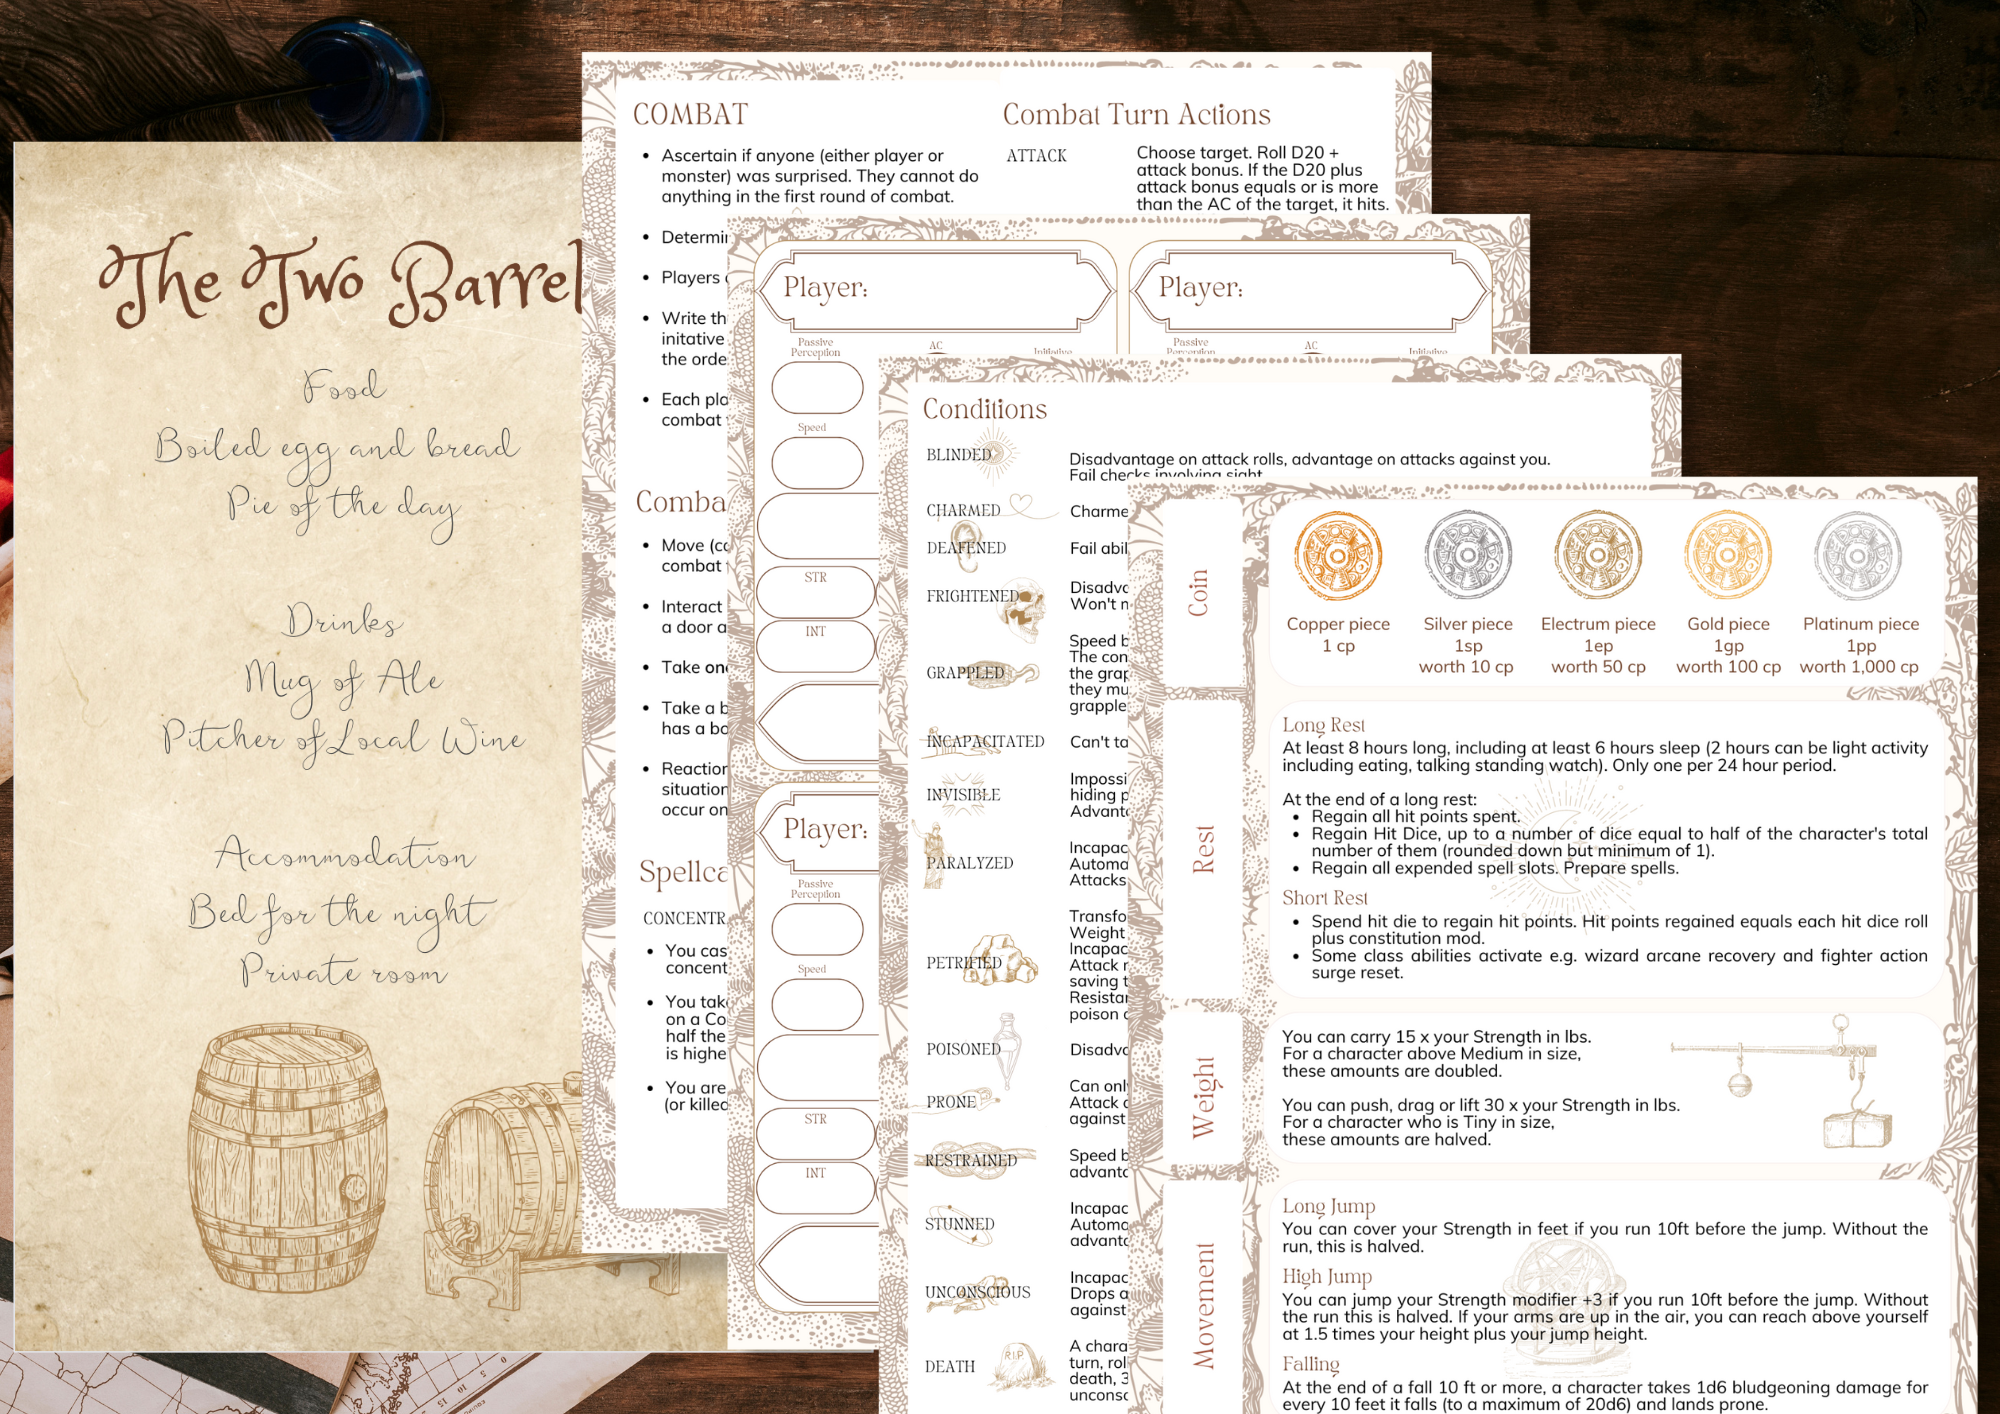 The Two Barrel
Food
Boiled egg and bread
Pie of the day
Drinks
Mug of Ale
Pitcher of Local Wine
Accommodation
Bed for the night
Private room
COMBAT
Ascertain if anyone (either player or
monster) was surprised. They cannot do
anything in the first round of combat.
Players
Write th
initative
the orde
Each pla
combat
Combat Turn Actions
ATTACK
Choose target. Roll D20 +
attack bonus. If the D20 plus
attack bonus equals or is more
than the AC of the target, it hits.
Comba
Move (co
combat
Interact
a door a
Take one
Take a b
has a bo
Reaction
situation
occur on
Spellca
CONCENTR
You cas
concent
You tak
on a Co
half the
is highe
You are
(or killed
Player:
Passive
Perception
AC
Initiative
Speed
STR
INT
Player:
Passive
Perception
AC
Initiative
Player:
Passive
Perception
Speed
STR
INT
Conditions
BLINDED
Disadvantage on attack rolls, advantage on attacks against you.
Fail checks involving sight
CHARMED
Charme
DEAFENED
Fail abil
FRIGHTENED
Disadva
Won't
GRAPPLED
Speed b
The con
the grap
they mu
grapple
INCAPACITATED
Can't ta
INVISIBLE
Impossi
hiding p
Advanta
PARALYZED
Incapac
Automa
Attacks
PETRIFIED
Transfo
Weight
Incapac
Attack r
saving t
Resista
poison
POISONED
Disadva
PRONE
Can only
Attack
against
RESTRAINED
Speed b
advanta
STUNNED
Incapac
Automa
advanta
UNCONSCIOUS
Incapac
Drops a
against
DEATH
R.I.P.
A chara
turn, rol
death, 3
unconsc
Coin
Copper piece
1 cp
Silver piece
1sp
worth 10 cp
Electrum piece
1ep
worth 50 cp
Gold piece
1gp
worth 100 cp
Platinum piece
1pp
worth 1,000 cp
Rest
Long Rest
At least 8 hours long, including at least 6 hours sleep (2 hours can be light activity
including eating, talking standing watch). Only one per 24 hour period.
At the end of a long rest:
Regain all hit points spent.
Regain Hit Dice, up to a number of dice equal to half of the character's total
number of them (rounded down but minimum of 1).
Regain all expended spell slots. Prepare spells.
Short Rest
Spend hit die to regain hit points. Hit points regained equals each hit dice roll
plus constitution mod.
Some class abilities activate e.g. wizard arcane recovery and fighter action
surge reset.
Weight
You can carry 15 x your Strength in lbs.
For a character above Medium in size,
these amounts are doubled.
You can push, drag or lift 30 x your Strength in lbs.
For a character who is Tiny in size,
these amounts are halved.
Movement
Long Jump
You can cover your Strength in feet if you run 10ft before the jump. Without the
run, this is halved.
High Jump
You can jump your Strength modifier +3 if you run 10ft before the jump. Without
the run this is halved. If your arms are up in the air, you can reach above yourself
at 1.5 times your height plus your jump height.
Falling
At the end of a fall 10 ft or more, a character takes 1d6 bludgeoning damage for
every 10 feet it falls (to a maximum of 20d6) and lands prone.